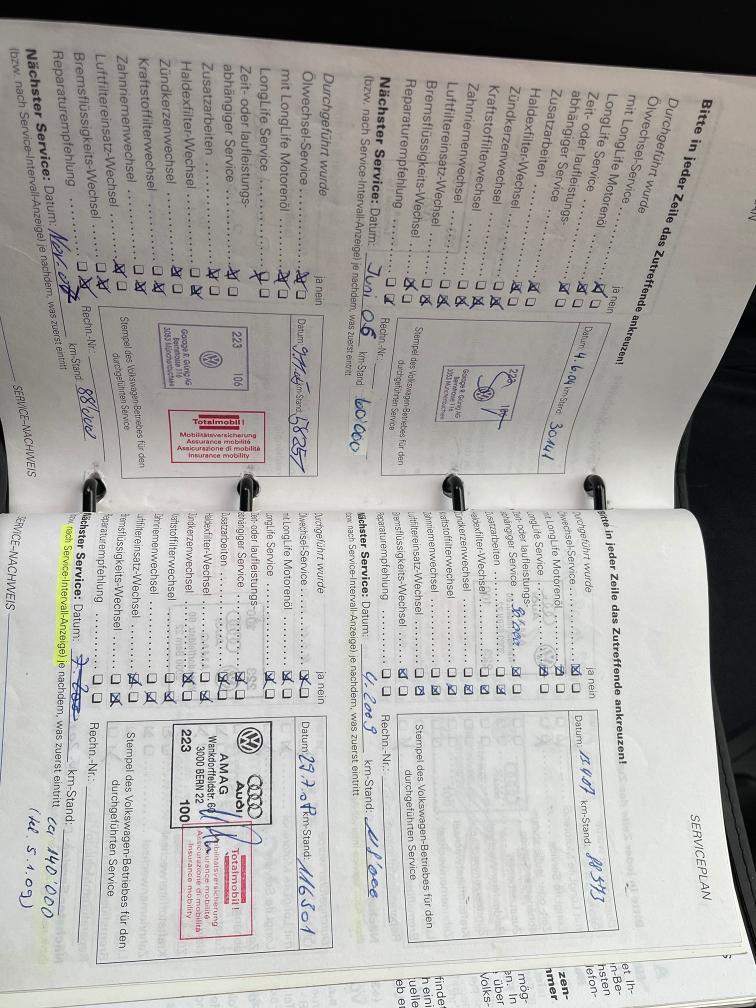 Bitte in jeder Zeile das Zutreffende ankreuzen!
Durchgeführt wurde
ja nein
Ölwechsel-Service
mit LongLife Motorenöl
LongLife Service
Zeit- oder laufleistungs-
abhängiger Service
Zusatzarbeiten
Haldexfilter-Wechsel
Zündkerzenwechsel
Kraftstoffilterwechsel
Zahnriemenwechsel
Luftfiltereinsatz-Wechsel
Bremsflüssigkeits-Wechsel
Reparaturempfehlung
Datum:
km-Stand: 30141
223
Garage R. Grünig AG
Bernstrasse 116
3053 Münchenbuchsee
Stempel des Volkswagen-Betriebes für den
durchgeführten Service
Rechn.-Nr.:
Nächster Service: Datum: Juni 06 km-Stand 60'000
(bzw. nach Service-Intervall-Anzeige) je nachdem, was zuerst eintritt
Durchgeführt wurde
ja nein
Ölwechsel-Service
mit LongLife Motorenöl
LongLife Service
Zeit- oder laufleistungs-
abhängiger Service
Zusatzarbeiten
Haldexfilter-Wechsel
Zündkerzenwechsel
Kraftstoffilterwechsel
Zahnriemenwechsel
Luftfiltereinsatz-Wechsel
Bremsflüssigkeits-Wechsel
Reparaturempfehlung
Datum:
km-Stand:
223 106
Garage R. Grünig AG
Bernstrasse 116
3053 Münchenbuchsee
Totalmobil!
Mobilitätsversicherung
Assurance mobilité
Assicurazione di mobilità
Insurance mobility
Stempel des Volkswagen-Betriebes für den
durchgeführten Service
Rechn.-Nr.:
Nächster Service: Datum: Nov. 07 km-Stand 88'000
(bzw. nach Service-Intervall-Anzeige) je nachdem, was zuerst eintritt
SERVICE-NACHWEIS
SERVICEPLAN
Bitte in jeder Zeile das Zutreffende ankreuzen!
Durchgeführt wurde
ja nein
Ölwechsel-Service
mit LongLife Motorenöl
LongLife Service
Zeit- oder laufleistungs-
abhängiger Service
Zusatzarbeiten
Haldexfilter-Wechsel
Zündkerzenwechsel
Kraftstoffilterwechsel
Zahnriemenwechsel
Luftfiltereinsatz-Wechsel
Bremsflüssigkeits-Wechsel
Reparaturempfehlung
Datum:
km-Stand:
Stempel des Volkswagen-Betriebes für den
durchgeführten Service
Rechn.-Nr.:
Nächster Service: Datum: 4.2009 km-Stand: 118'000
(bzw. nach Service-Intervall-Anzeige) je nachdem, was zuerst eintritt
Durchgeführt wurde
ja nein
Ölwechsel-Service
mit LongLife Motorenöl
LongLife Service
Zeit- oder laufleistungs-
abhängiger Service
Zusatzarbeiten
Haldexfilter-Wechsel
Zündkerzenwechsel
Kraftstoffilterwechsel
Zahnriemenwechsel
Luftfiltereinsatz-Wechsel
Bremsflüssigkeits-Wechsel
Reparaturempfehlung
Datum: 29.7.08 km-Stand: 116301
Audi
AMAG
Wankdorffeldstr. 60
3000 BERN 22
223 100
Totalmobil!
Mobilitätsversicherung
Assurance mobilité
Assicurazione di mobilità
Insurance mobility
Stempel des Volkswagen-Betriebes für den
durchgeführten Service
Rechn.-Nr.:
Nächster Service: Datum: km-Stand: ca 140'000
(bzw. nach Service-Intervall-Anzeige) je nachdem, was zuerst eintritt
(tel 5.1.09)
SERVICE-NACHWEIS